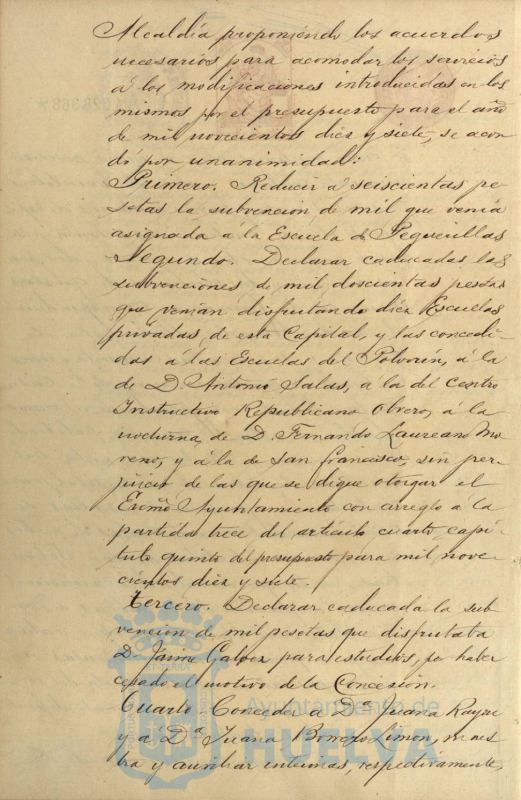 Alcaldía proponiendo los acuerdos
necesarios para acomodar los servicios
á las modificaciones introducidas en los
mismos por el presupuesto para el año
de mil novecientos diez y siete, se acor
dó por unanimidad:
Primero. Reducir á seiscientas pe
setas la subvencion de mil que venía
asignada a la Escuela de Pequeñillas
Segundo. Declarar caducadas las
subvenciones de mil doscientas pesetas
que venían disfrutando diez Escuelas
privadas, de esta Capital, y las concedi-
das á las Escuelas del Polvorín, á la
de D. Antonio Salas, á la del Centro
Instructivo Republicano Obrero, á la
nocturna, de D. Fernando Laureano Mo
reno, y á la de San Francisco, sin per-
juicio de las que se digne otorgar el
Excmo Ayuntamiento con arreglo á la
partida trece del artículo cuarto, capí-
tulo quinto del presupuesto para mil nove
cientos diez y siete.
Tercero. Declarar caducada la sub
vencion de mil pesetas que disfrutaba
D. Jaime Galvez para estudios, por haber
cesado el motivo de la Concesión.
Cuarto. Conceder a Dª Juana
y á Dª Juana Borrego Limon, maes
tra y auxiliar internas, respectivamente,
Ayuntamiento de
HUELVA